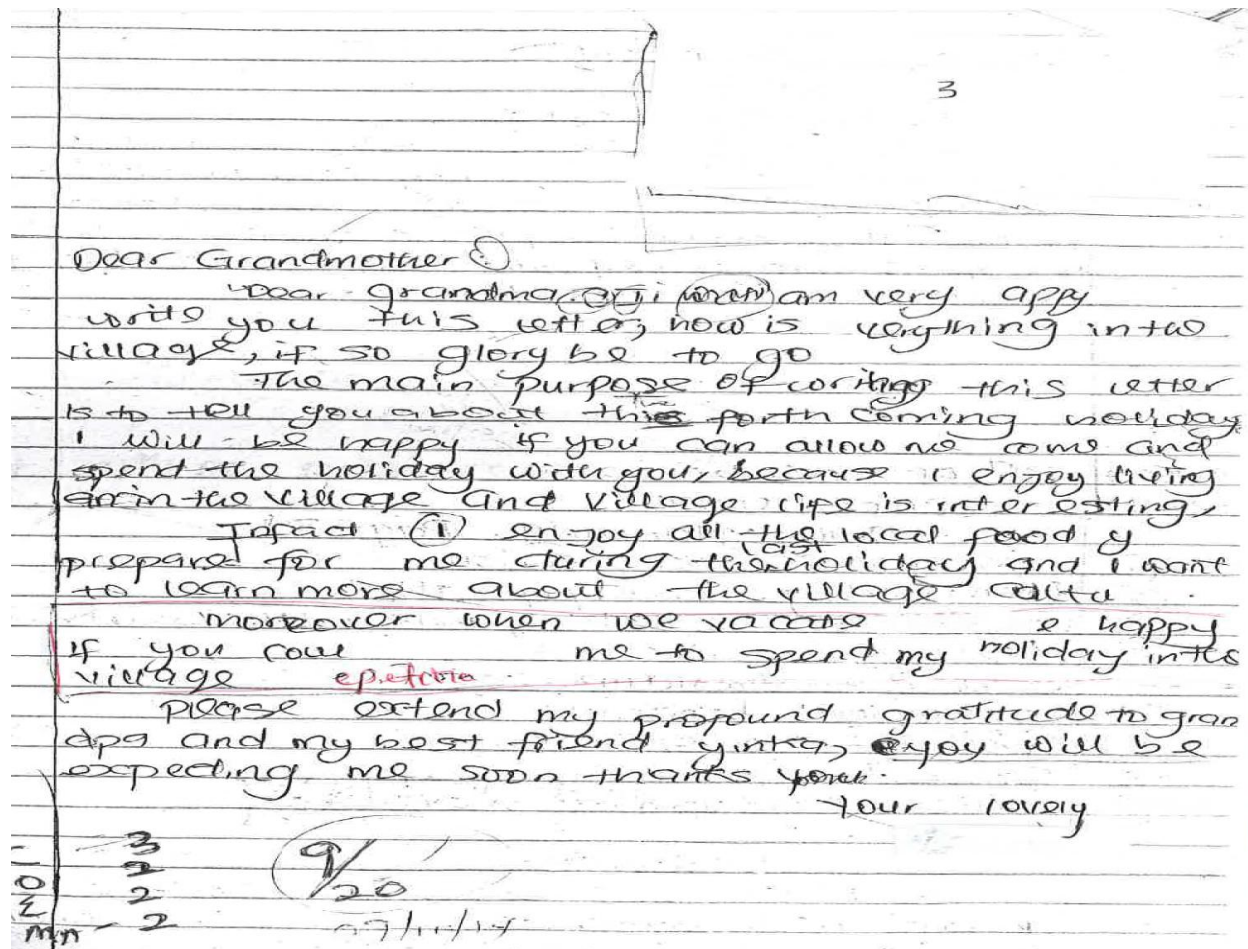 3
Dear Grandmother
Dear grandma am very appy
write you this letter, how is verything in the
village, if so glory be to go
The main purpose of writing this letter
is to tell you about this forth coming holiday
I will be happy if you can allow me come and
spend the holiday with you, because i enjoy living
in the village and village life is interesting,
Infact i enjoy all the local food y
prepare for me during the last holiday and i want
to learn more about the village cultu
moreover when we vacate e happy
if you coul me to spend my holiday in the
village
please extend my profound gratitude to gran
dpa and my best friend yinka, will be
expecting me soon thanks
Your lovely
3
2
2
mn - 2
9/20